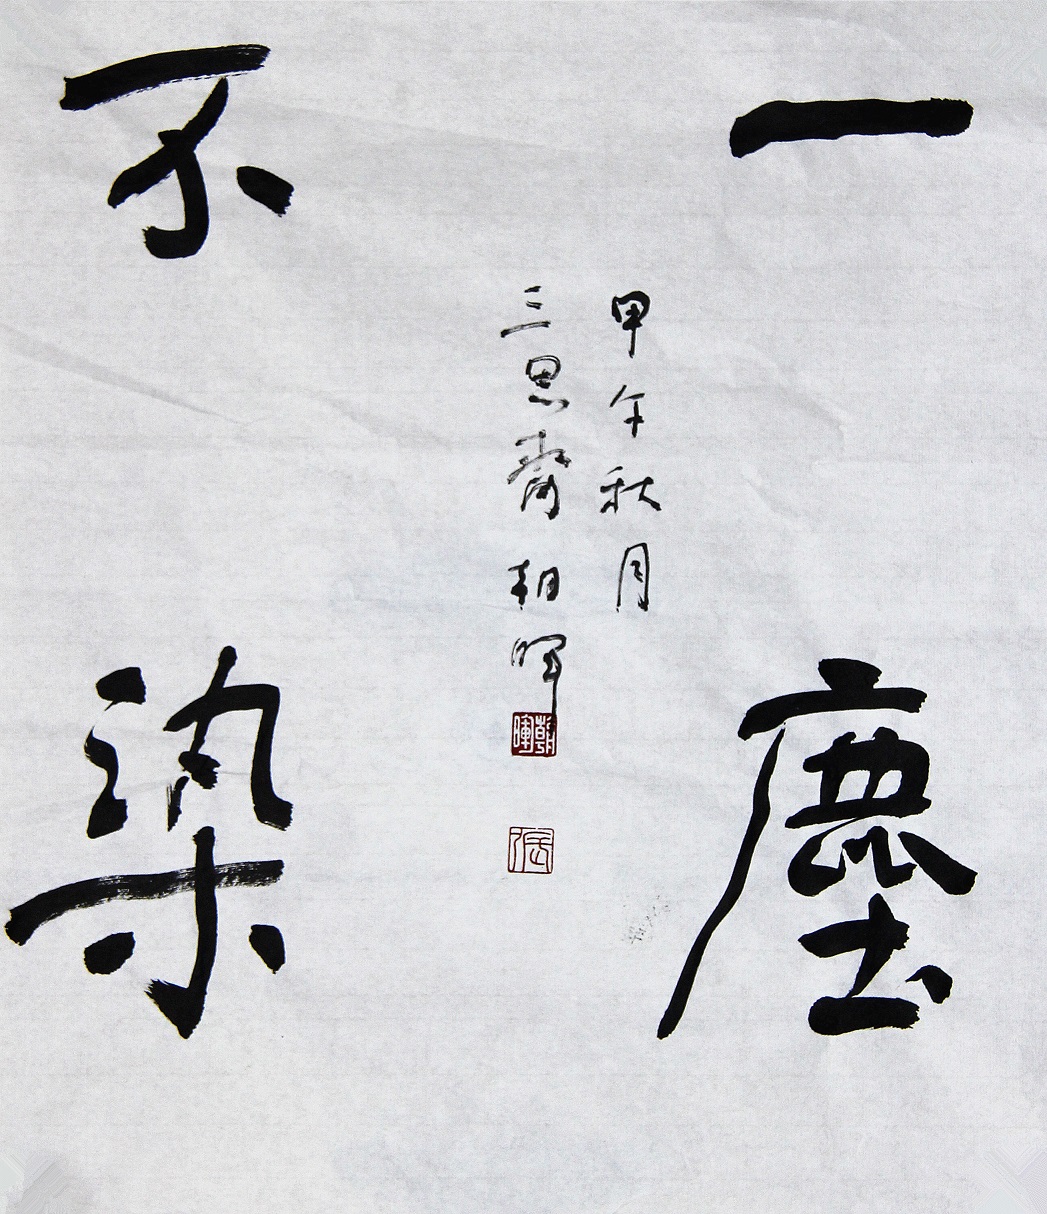 一塵
不染
甲午秋月
三思齋朝暉
朝暉
張